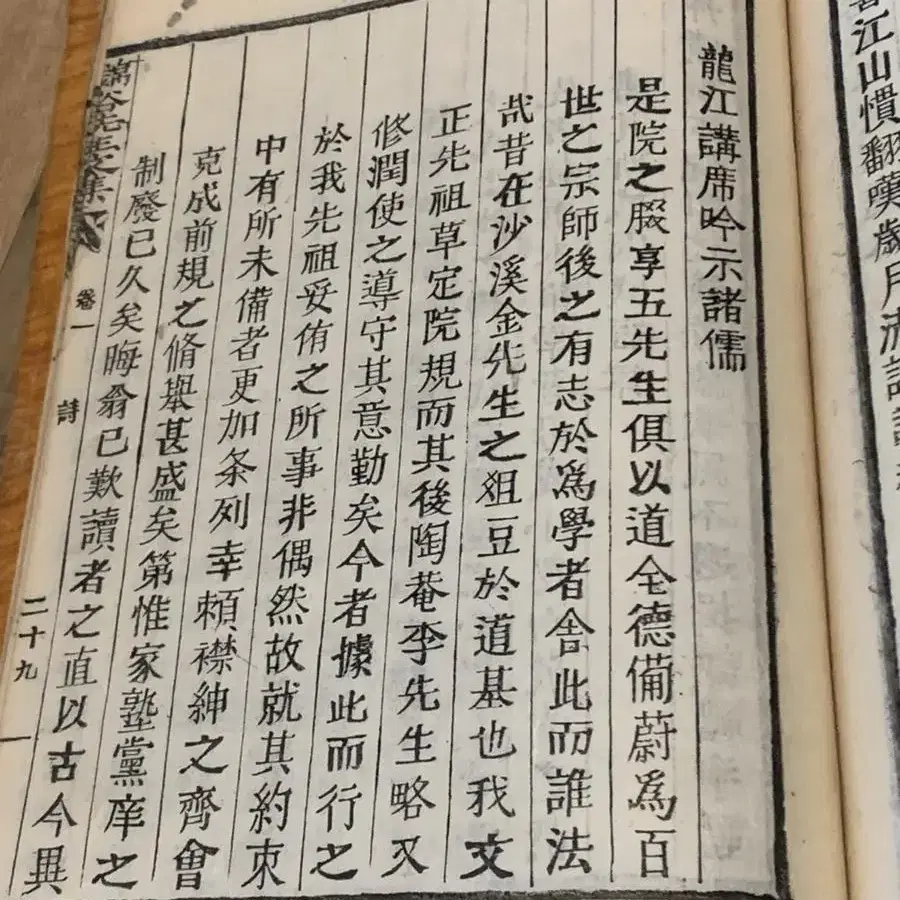 江山慣翻嘆歲月
龍江講席吟示諸儒
是院之腏享五先生俱以道全德備蔚爲百
世之宗師後之有志於爲學者舍此而誰法
哉昔在沙溪金先生之俎豆於道基也我文
正先祖草定院規而其後陶菴李先生略又
修潤使之導守其意勤矣今者據此而行之
於我先祖妥侑之所事非偶然故就其約束
中有所未備者更加条列幸賴襟紳之齊會
克成前規之脩舉甚盛矣第惟家塾黨庠之
制廢已久矣晦翁已歎讀者之直以古今異
錦谷先生文集 卷一 詩 二十九